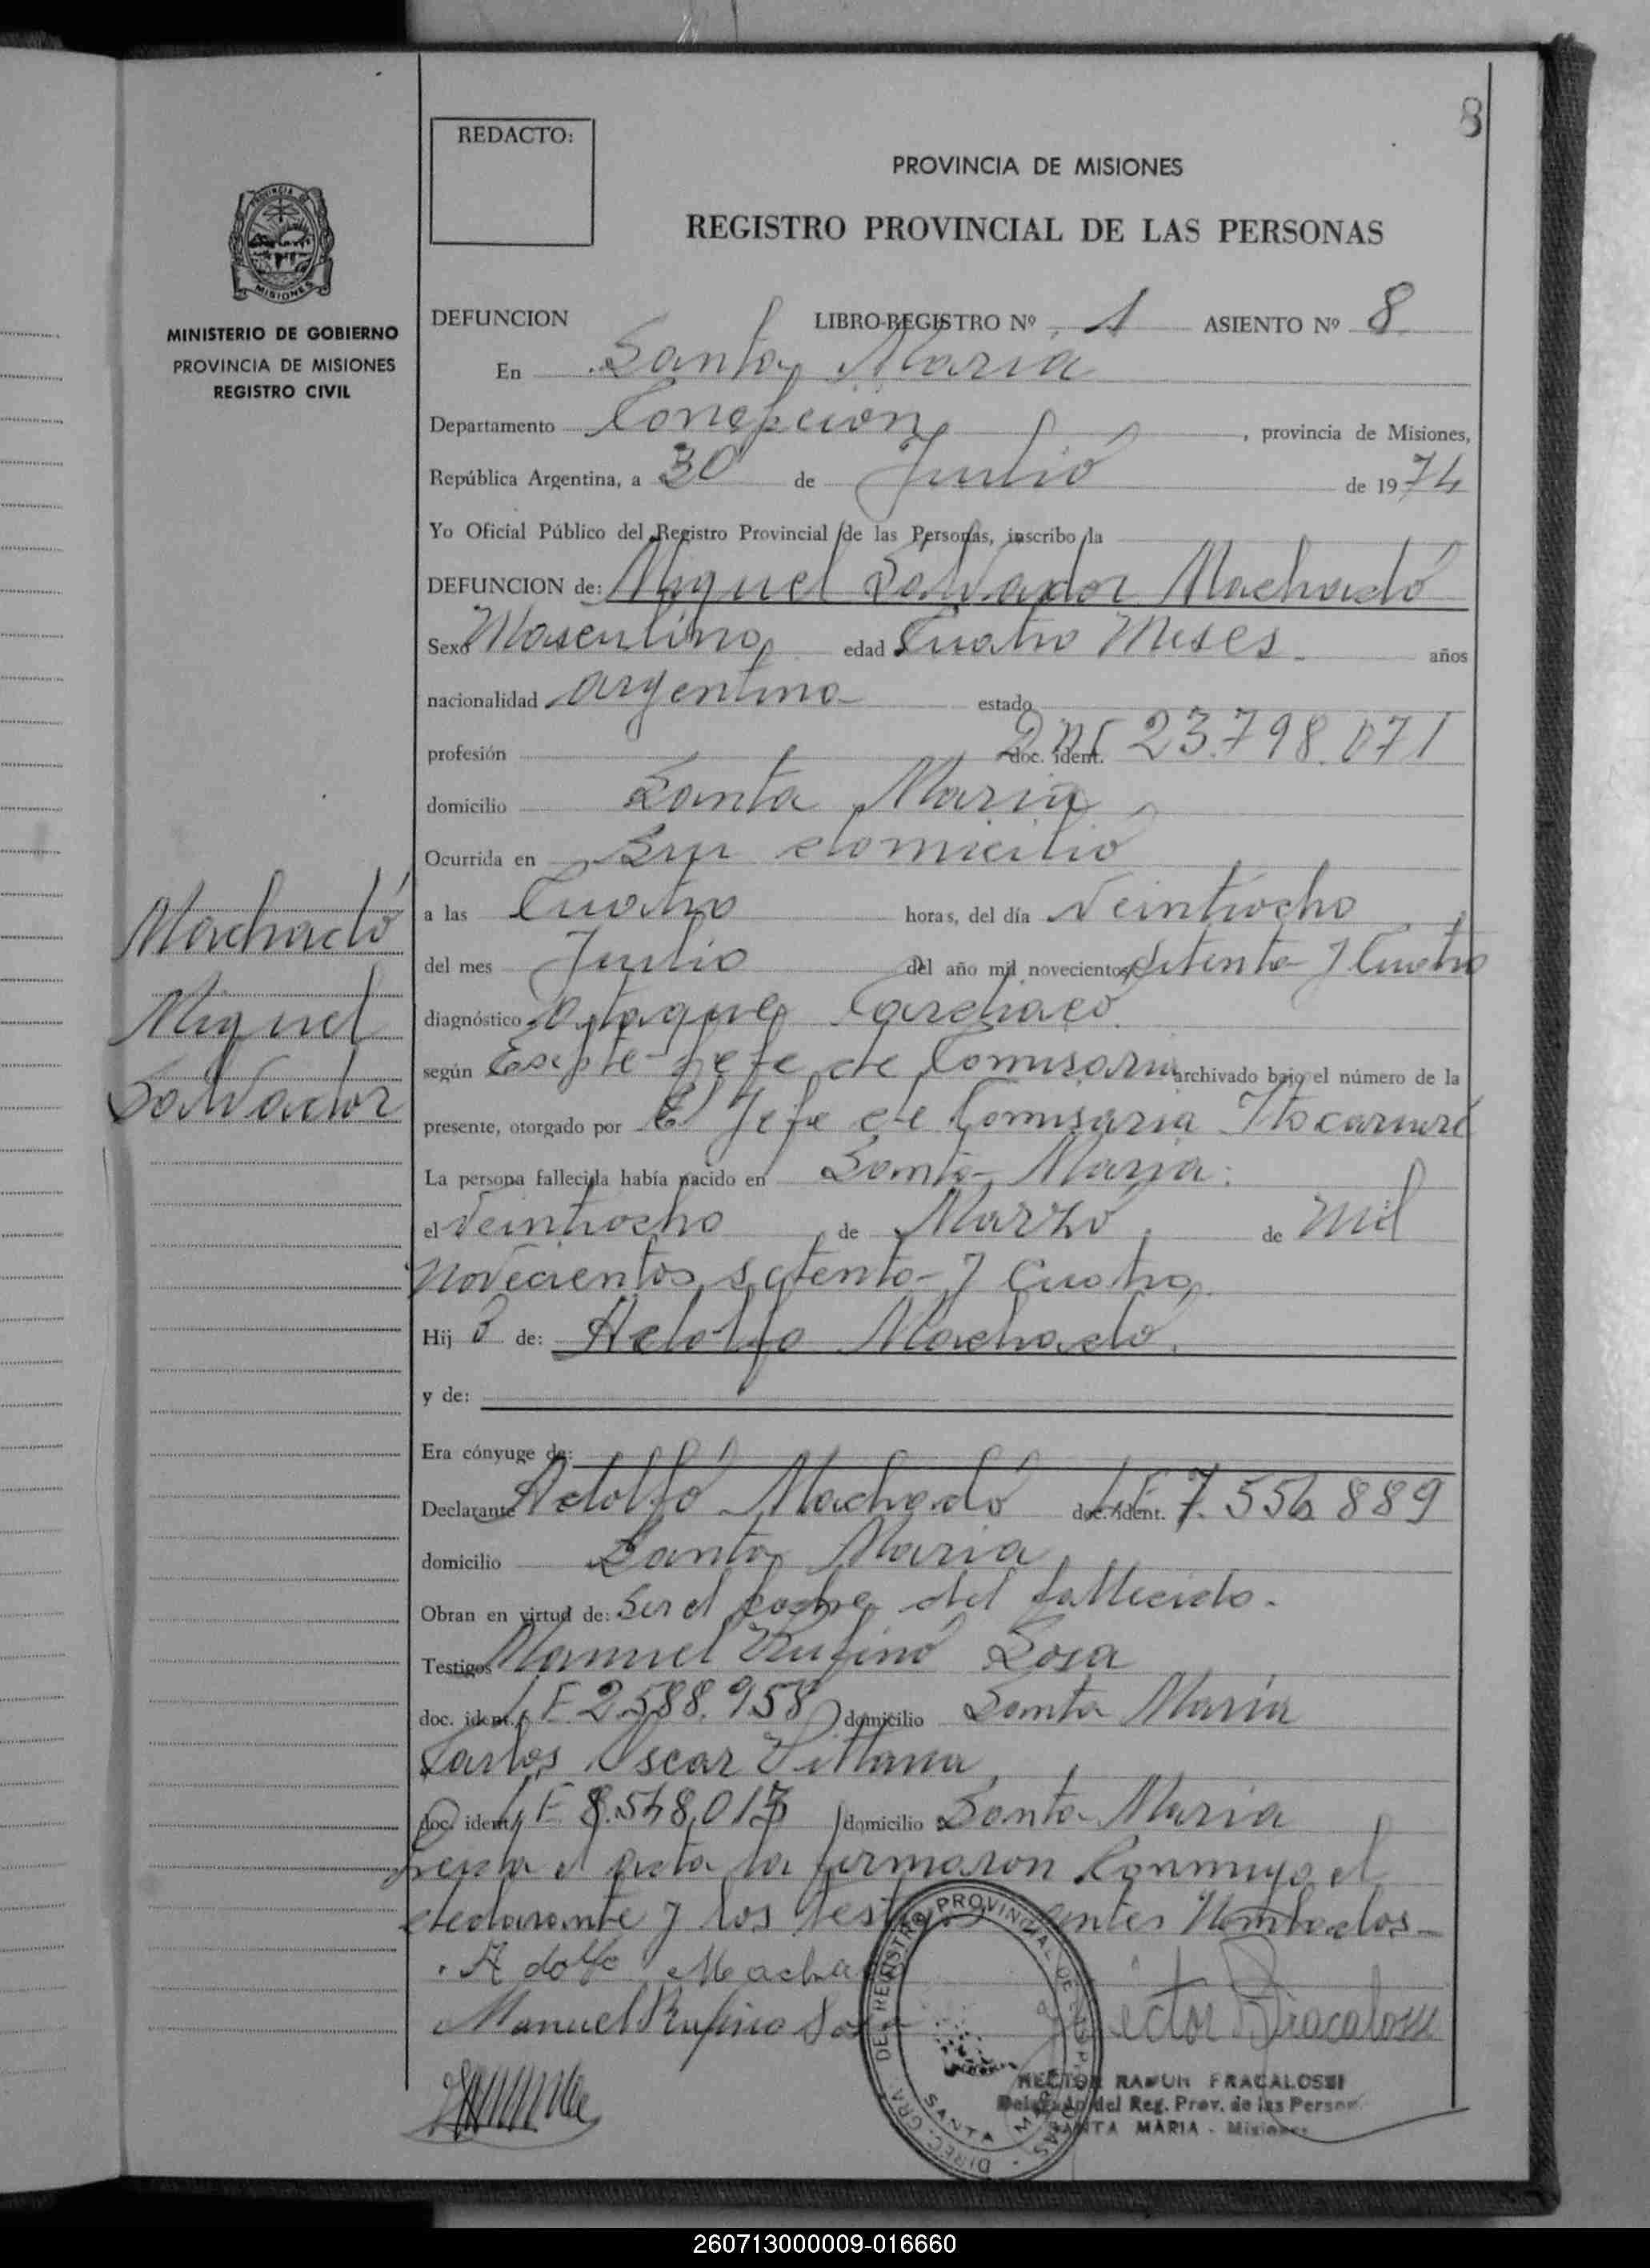 8
REDACTO:
PROVINCIA DE MISIONES
REGISTRO PROVINCIAL DE LAS PERSONAS
PROVINCIA DE MISIONES
MINISTERIO DE GOBIERNO
PROVINCIA DE MISIONES
REGISTRO CIVIL
DEFUNCION LIBRO-REGISTRO Nº 1 ASIENTO Nº 8
En Santa Maria
Departamento Concepción, provincia de Misiones,
República Argentina, a 30 de Junlio de 1974
Yo Oficial Público del Registro Provincial de las Personas, inscribo la
DEFUNCION de: Miguel Salvador Machado
Sexo Masculino edad Cuatro Meses años
nacionalidad argentina estado
profesión doc. ident. DNI 23.798.071
domicilio Santa Maria
Ocurrida en Su domicilio
a las Cuatro horas, del día Veintiocho
del mes Junlio del año mil novecientos Setenta y Cuatro
diagnóstico Ataque Cardiaco
según Jefe de Comisaria archivado bajo el número de la
presente, otorgado por El Jefe de Comisaria Itacaruaré
La persona fallecida había nacido en Santa Maria.
el Veintiocho de Marzo de Mil
Novecientos Setenta y Cuatro
Hijo de: Adolfo Machado
y de:
Era cónyuge de:
Declarante Adolfo Machado doc. ident. LE 7.556.889
domicilio Santa Maria
Obran en virtud de: Ser el padre del fallecido.
Testigos Manuel Rufino Sosa
doc. ident. LE 2.588.958 domicilio Santa Maria
Carlos Oscar Villana
doc. ident. LE 8.548.017 domicilio Santa Maria
el acta la firmaron Conmigo el
declarante y los testigos antes Nombrados
Adolfo Macha
Manuel Rufino Sosa
Hector Fracalossi
HECTOR RAMON FRACALOSSI
Delegado del Reg. Prov. de las Person
SANTA MARIA - Misiones
DIREC. GRAL. DE REGISTRO PROVINCIAL DE LAS PERSONAS
SANTA MARIA
Machado
Miguel
Salvador
260713000009-016660